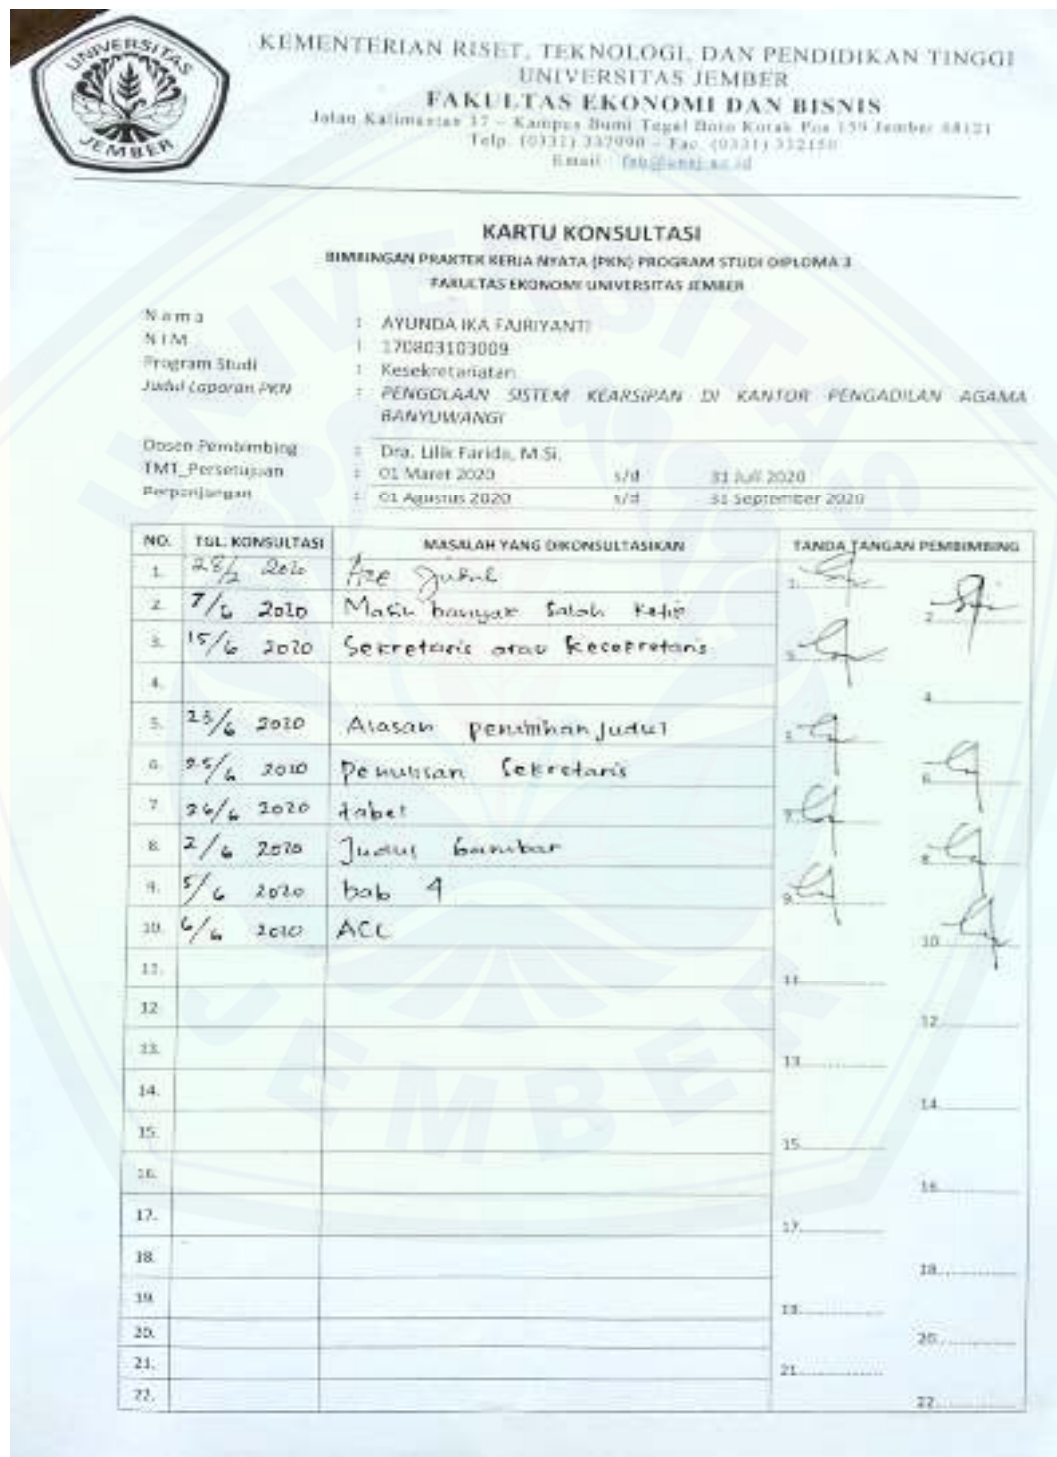 UNIVERSITAS
JEMBER
KEMENTERIAN RISET, TEKNOLOGI, DAN PENDIDIKAN TINGGI
UNIVERSITAS JEMBER
FAKULTAS EKONOMI DAN BISNIS
Jalan Kalimantan 37 – Kampus Bumi Tegal Boto Kotak Pos 159 Jember 68121
Telp. (0331) 337990 – Fac. (0331) 332150
Email : feb@unej.ac.id
KARTU KONSULTASI
BIMBINGAN PRAKTEK KERJA NYATA (PKN) PROGRAM STUDI DIPLOMA 3
FAKULTAS EKONOMI UNIVERSITAS JEMBER
N a m a : AYUNDA IKA FAJRIYANTI
N I M : 170803103009
Program Studi : Kesekretariatan
Judul Laporan PKN : PENGOLAAN SISTEM KEARSIPAN DI KANTOR PENGADILAN AGAMA
BANYUWANGI
Dosen Pembimbing : Dra. Lilik Farida, M.Si.
TMT_Persetujuan : 01 Maret 2020 s/d 31 Juli 2020
Perpanjangan : 01 Agustus 2020 s/d 31 September 2020
NO. TGL. KONSULTASI MASALAH YANG DIKONSULTASIKAN TANDA TANGAN PEMBIMBING
1. 28/2 2020 Judul 1.
2. 7/6 2020 Masih banyak Salah Ketik 2.
3. 15/6 2020 Sekretaris atau Kesekretaris 3.
4. 4.
5. 23/6 2020 Alasan pemilihan Judul 5.
6. 25/6 2020 Penulisan Sekretaris 6.
7. 26/6 2020 tabel 7.
8. 2/6 2020 Judul Gambar 8.
9. 5/6 2020 bab 4 9.
10. 6/6 2020 ACC 10.
11. 11.
12. 12.
13. 13.
14. 14.
15. 15.
16. 16.
17. 17.
18. 18.
19. 19.
20. 20.
21. 21.
22. 22.